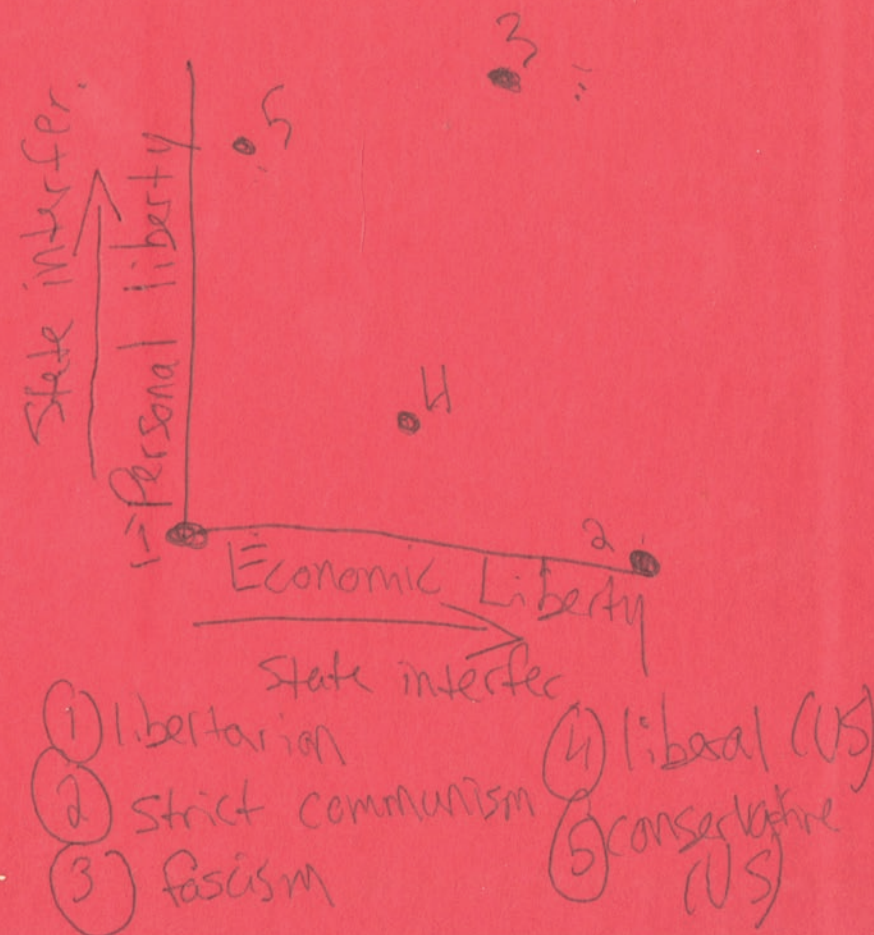 3
5
State interfer.
Personal liberty
4
1->
2
Economic Liberty
State interfer
① libertarian
② strict communism
③ fascism
④ liberal (US)
⑤ conservative
(US)